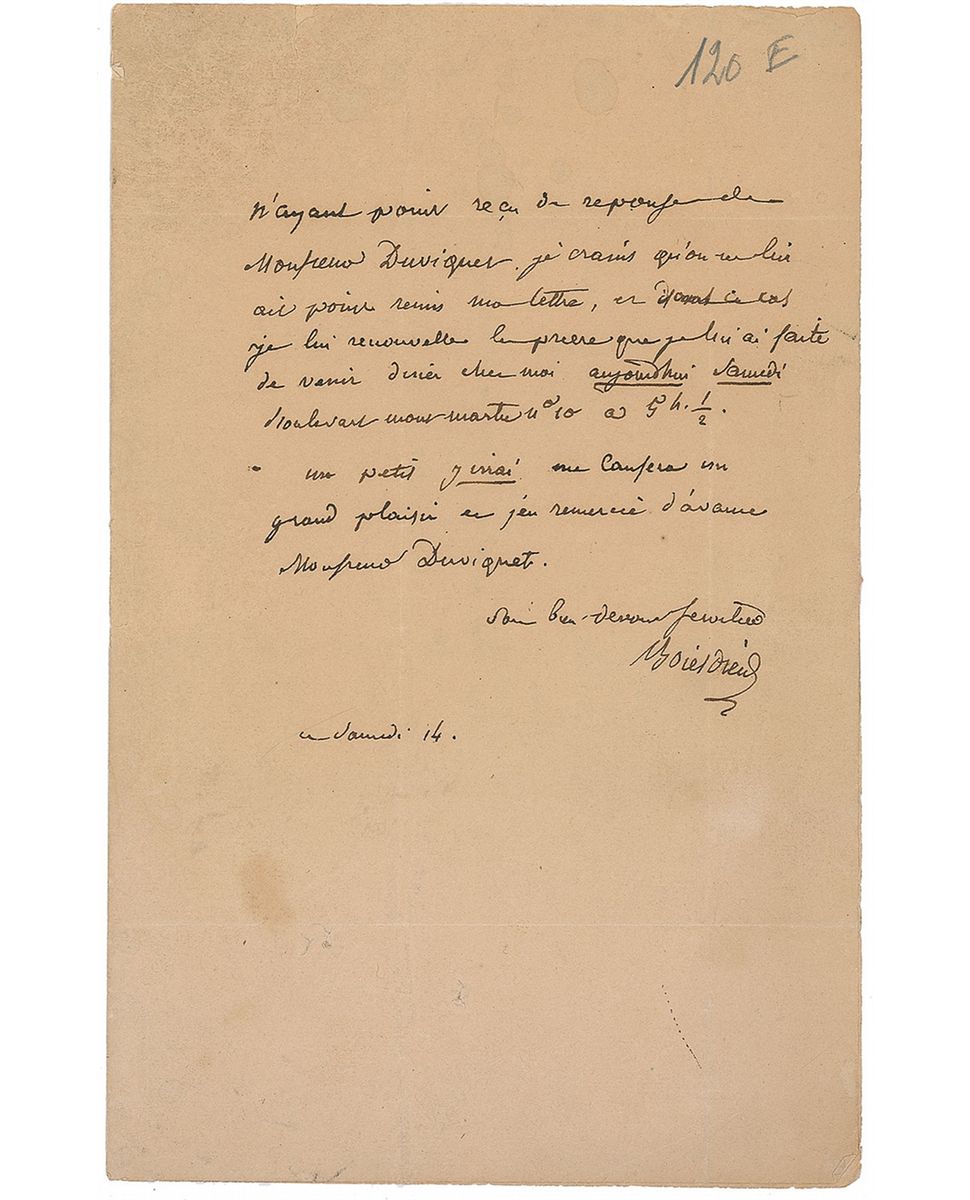 120 E
n'ayant point reçu de reponse de
Monsieur Duviquet, je crains qu'on ne lui
ait point remis ma lettre, et dans ce cas
je lui renouvelle la priere que je lui ai faite
de venir diner chez moi aujourdhui Samedi
boulevart mont-martre n° 10 a 5 h. 1/2.
un petit j'irai me causera un
grand plaisir et j'en remercie d'avance
Monsieur Duviquet.
Son bien devoué serviteur
Boieldieu
ce Samedi 14.